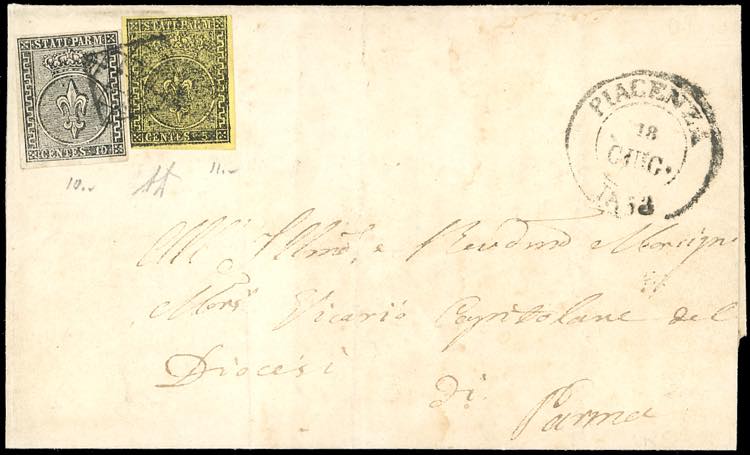 STATI PARM.
CENTES. 10
STATI PARM.
CENTES. 5
PIACENZA
18
GIUG.
1853
10.–
11.–
All' Illmo. e Revdmo Monsign.
Mons. Vicario Capitolare del
Diocesi
di
Parma